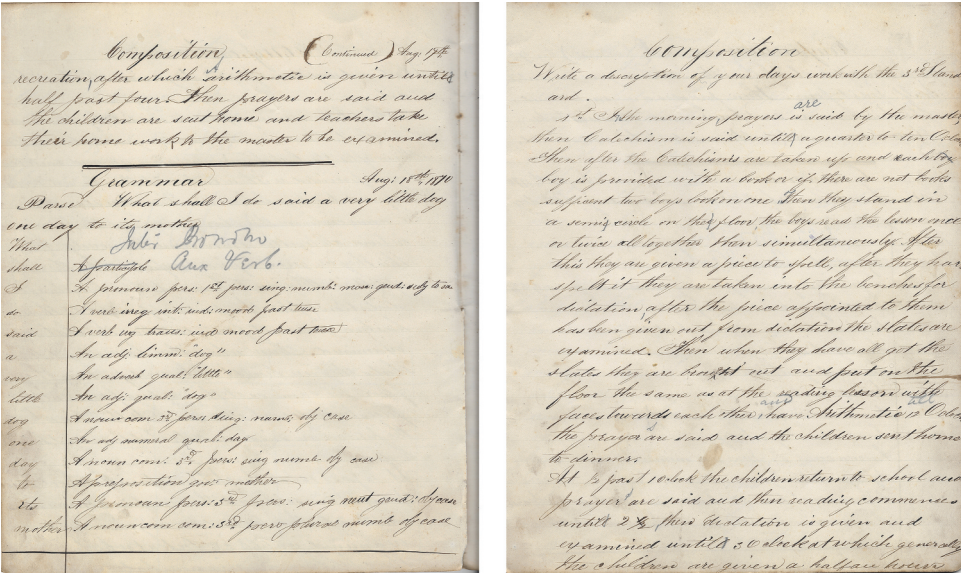 Composition (Continued) Aug. 17th
recreation, after which Arithmetic is given until
half past four. Then prayers are said and
the children are sent home and teachers take
their home work to the master to be examined.
Grammar Aug: 18th, 1870
Parse What shall I do said a very little dog
one day to its mother
What
shall A participle Aux Verb.
I A pronoun pers: 1st pers: sing: numb:
do A verb ireg int: ind: mood past tense
said A verb trans: ind mood past tense
a An adj limm: "dog"
very An adverb qual: "little"
little An adj: qual: "dog"
dog A noun com 3rd pers: sing: obj case
one An adj numeral qual: day
day A noun com: 3rd pers: sing numb obj case
to A preposition gov: mother
its A pronoun pers: 3rd pers: sing neut gend: obj case
mother A noun com com: 3rd pers plural numb obj case
Composition
Write a description of your days work with the 3rd Stand
ard.
1st In the morning, prayers are is said by the master,
then Catechism is said until a quarter to ten
Then after the Catechisms are taken up and each boy
boy is provided with a book or if there are not books
suffient two boys look on one Then they stand in
a semi, circle on the floor the boys read the lesson once
or twice all together then simultaneously. After
this they are given a piece to spell, after they have
spelt it they are taken into the benches for
dictation after the piece appointed to them
has been given out from dictation the slates are
examined. Then when they have all got the
slates they are out and put on the
floor the same as at the reading lesson with
faces towards each other, and have Arithmetic 12
the prayers are said and the children sent home
to dinner.
At ½ past 1 o'clock the children return to school and
prayers are said and then reading commences
untill 2 ½, then dictation is given and
examined untill 3 O clock at which generally
the children are given a half an hours